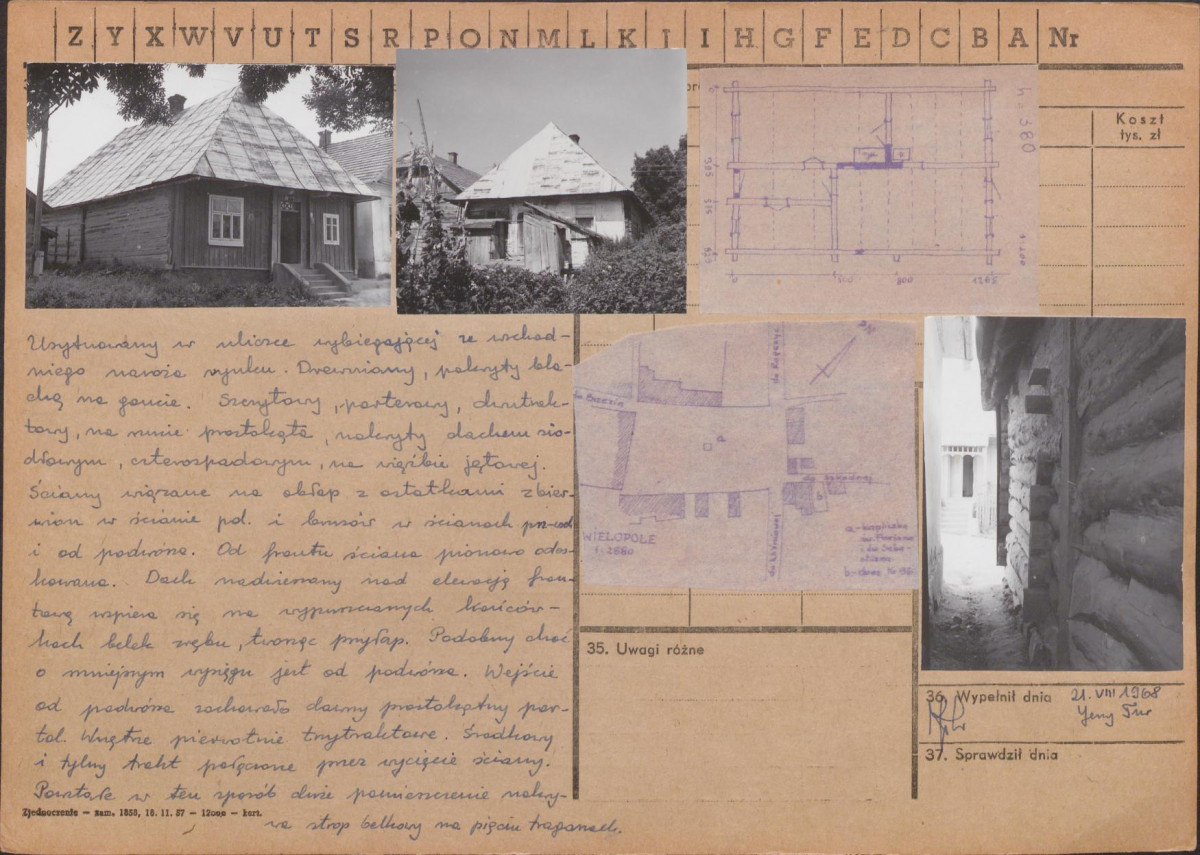 Z Y X W V U T S R P O N M L K J I H G F E D C B A Nr
Koszt
tys. zł
h = 380
0 1265
Usytuowany w uliczce wybiegającej ze wschod-
niego naroża rynku. Drewniany, pokryty bla-
chą na goncie. Szczytowy, parterowy, dwutrak-
towy, na rzucie prostokąta, nakryty dachem sio-
dłowym, czterospadowym, na więźbie jętowej.
Ściany wiązane na obłap z ostatkami z bier-
wion w ścianie pd. i balusów w ścianach pn-wsch
i od podwórza. Od frontu ściana pionowo odes-
kowana. Dach nadwieszony nad elewacją fron-
tową wspiera się na wypuszczanych końców-
kach belek zrębu, tworząc przyłap. Podobny choć
o mniejszym wysięgu jest od podwórza. Wejście
od podwórza zachowało dawny prostokątny por-
tal. Wnętrze pierwotnie trzytraktowe. Środkowy
i tylny trakt połączone przez wycięcie ściany.
Powstałe w ten sposób duże pomieszczenie nakry-
wa strop belkowy na pięciu tragarzach.
WIELOPOLE
1:2880
a - kapliczka
35. Uwagi różne
36. Wypełnił dnia 21. VIII 1968
Jerzy Tur
37. Sprawdził dnia
Zjednoczenie — zam. 1858, 18. 11. 57 — 12000 — kart.